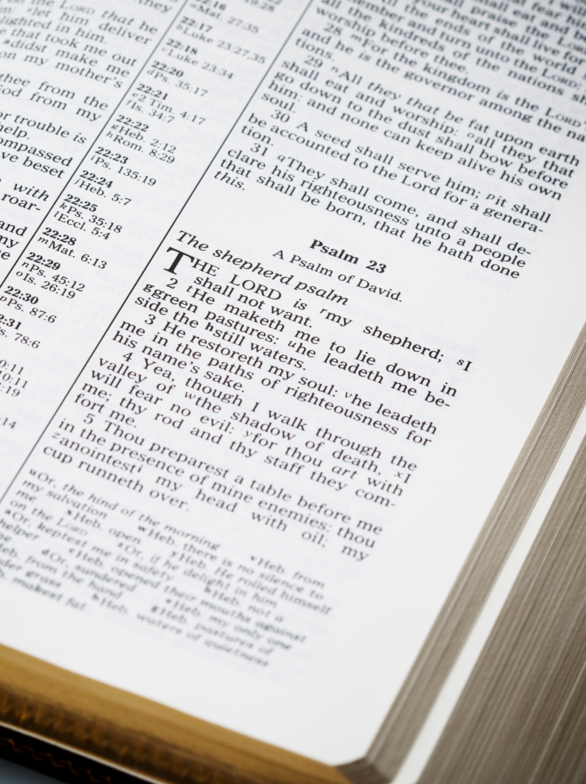 LORD that he
lighted in him
let him deliver
that took me out
didst make me
on my mother's
thee from the
God from my
or trouble is
help.
compassed
ve beset
with
roar-
and
my
22:16
Mat. 27:35
22:17
Luke 23:27,35
22:18
Luke 23:34
22:20
Ps. 35:17
22:21
2 Tim. 4:17
Is. 34:7
22:22
Heb. 2:12
Rom. 8:29
22:23
Ps. 135:19
22:24
Heb. 5:7
22:25
Ps. 35:18
Eccl. 5:4
22:28
Mat. 6:13
22:29
Ps. 45:12
Is. 26:19
22:30
Ps. 87:6
:31
s. 78:6
0:11
10:11
:19
:14
member and turn unto the LORD
all the kindreds of the nations
worship before thee.
28 For the kingdom is the LORD
and he is the governor among the na-
tions.
29 All they that be fat upon earth
shall eat and worship: all they that
go down to the dust shall bow before
him: and none can keep alive his own
soul.
30 A seed shall serve him; it shall
be accounted to the Lord for a genera-
tion.
31 They shall come, and shall de-
clare his righteousness unto a people
that shall be born, that he hath done
this.
Psalm 23
The shepherd psalm
A Psalm of David.
THE LORD is my shepherd; I
shall not want.
2 He maketh me to lie down in
green pastures: he leadeth me be-
side the still waters.
3 He restoreth my soul: he leadeth
me in the paths of righteousness for
his name's sake.
4 Yea, though I walk through the
valley of the shadow of death, I
will fear no evil: for thou art with
me; thy rod and thy staff they com-
fort me.
5 Thou preparest a table before me
in the presence of mine enemies: thou
anointest my head with oil; my
cup runneth over.
Or, the hind of the morning Heb. from
my salvation Heb. there is no silence to
me Heb. open Heb. He rolled himself
on the LORD Or, if he delight in him
Or, keptest me in safety Heb. not a
helper Heb. opened their mouths against
me Or, sundered Heb. my only one
Heb. from the hand Heb. pastures of
tender grass Heb. waters of quietness
Heb. makest fat